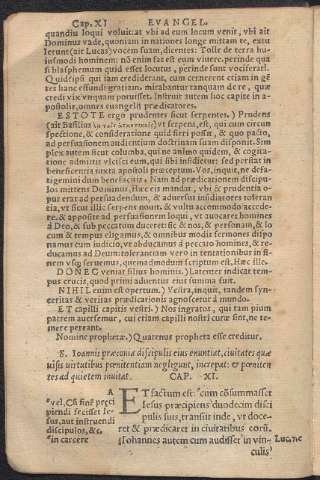 Cap. XI EVANGEL.
quandiu loqui voluit: at vbi ad eum locum venit, vbi ait
Dominus vade, quoniam in nationes longe mittam te, extu
lerunt (ait Lucas) vocem suam, dicentes: Tolle de terra hu-
iusmodi hominem: nō enim fas est eum viuere. perinde qua
si blasphemum quid esset locutus, perinde sunt vociferati.
Quid si qui iam crediderant, cum cernerent etiam in gē
tes hanc effundi gratiam. mirabantur tanquam de re, quæ
credi vix vnquam potuisset. Instruit autem hoc capite in a-
postolis, omnes euangelij prædicatores.
ESTOTE ergo prudentes sicut serpentes.) Prudens
(ait Basilius) vt serpens est, qui cum circun
spectione, & consideratione quid fieri possit, & quo pacto,
ad persuasionem auditentium doctrinam suam disponit. Sim
plex autem sicut columba, qui ne animo quidem, & cogita-
tione admittit vlcisci eum, qui sibi insidietur: sed perstat in
beneficentia iuxta apostoli præceptum. Vos, inquit, ne defa-
tigemini dum benefacitis. Nam ad prædicationem discipu-
los mittens Dominus, Hæc eis mandat, vbi & prudentia o-
pus erat ad persuadendum, & aduersus insidiatores toleran
tia, vt sicut illic serpens nouit, & vultu accommodo accede-
re, & apposite ad persuasionem loqui, vt auocaret homines
à Deo, & sub peccatum duceret: sic & nos, & personam, & lo
cum & tempus eligamus, & omnibus modis sermones dispo
namus cum iudicio, vt abducamus à peccato homines, & re-
ducamus ad Deum: tolerantiam vero in tentationibus in fi-
nem vsq; seruemus, quemadmodum scriptum est, Hæc ille.
DONEC veniat filius hominis.) Latenter indicat tem-
pus crucis, quod primi aduentus eius summa fuit.
NIHIL enim est opertum.) Vestra, inquit, tandem syn-
ceritas & veritas prædicationis agnoscetur à mundo.
ET capilli capitis vestri.) Nos ingratos, qui tam pium
patrem auersemur, cui etiam capilli nostri curæ sint, ne te-
mere pereant.
Nomine prophetæ.) Quatenus propheta esse creditur.
E. Ioannis præconia discipulis eius enuntiat, ciuitates quæ
uisis uirtutibus penitentiam neglegunt, increpat: & pœniten
tes ad quietem inuitat. CAP. XI.
ET factum est: cum cōsummasset
Iesus præcipiens duodecim disci
pulis suis, transijt inde, vt doce-
ret & prædicaret in ciuitatibus eorū.
Iohannes autem cum audisset in vin-
culis
A
vel, Cū finē præci
piendi fecisset Ie-
sus, aut instruendi
discipulos, &c.
in carcere
Luc. 7. c